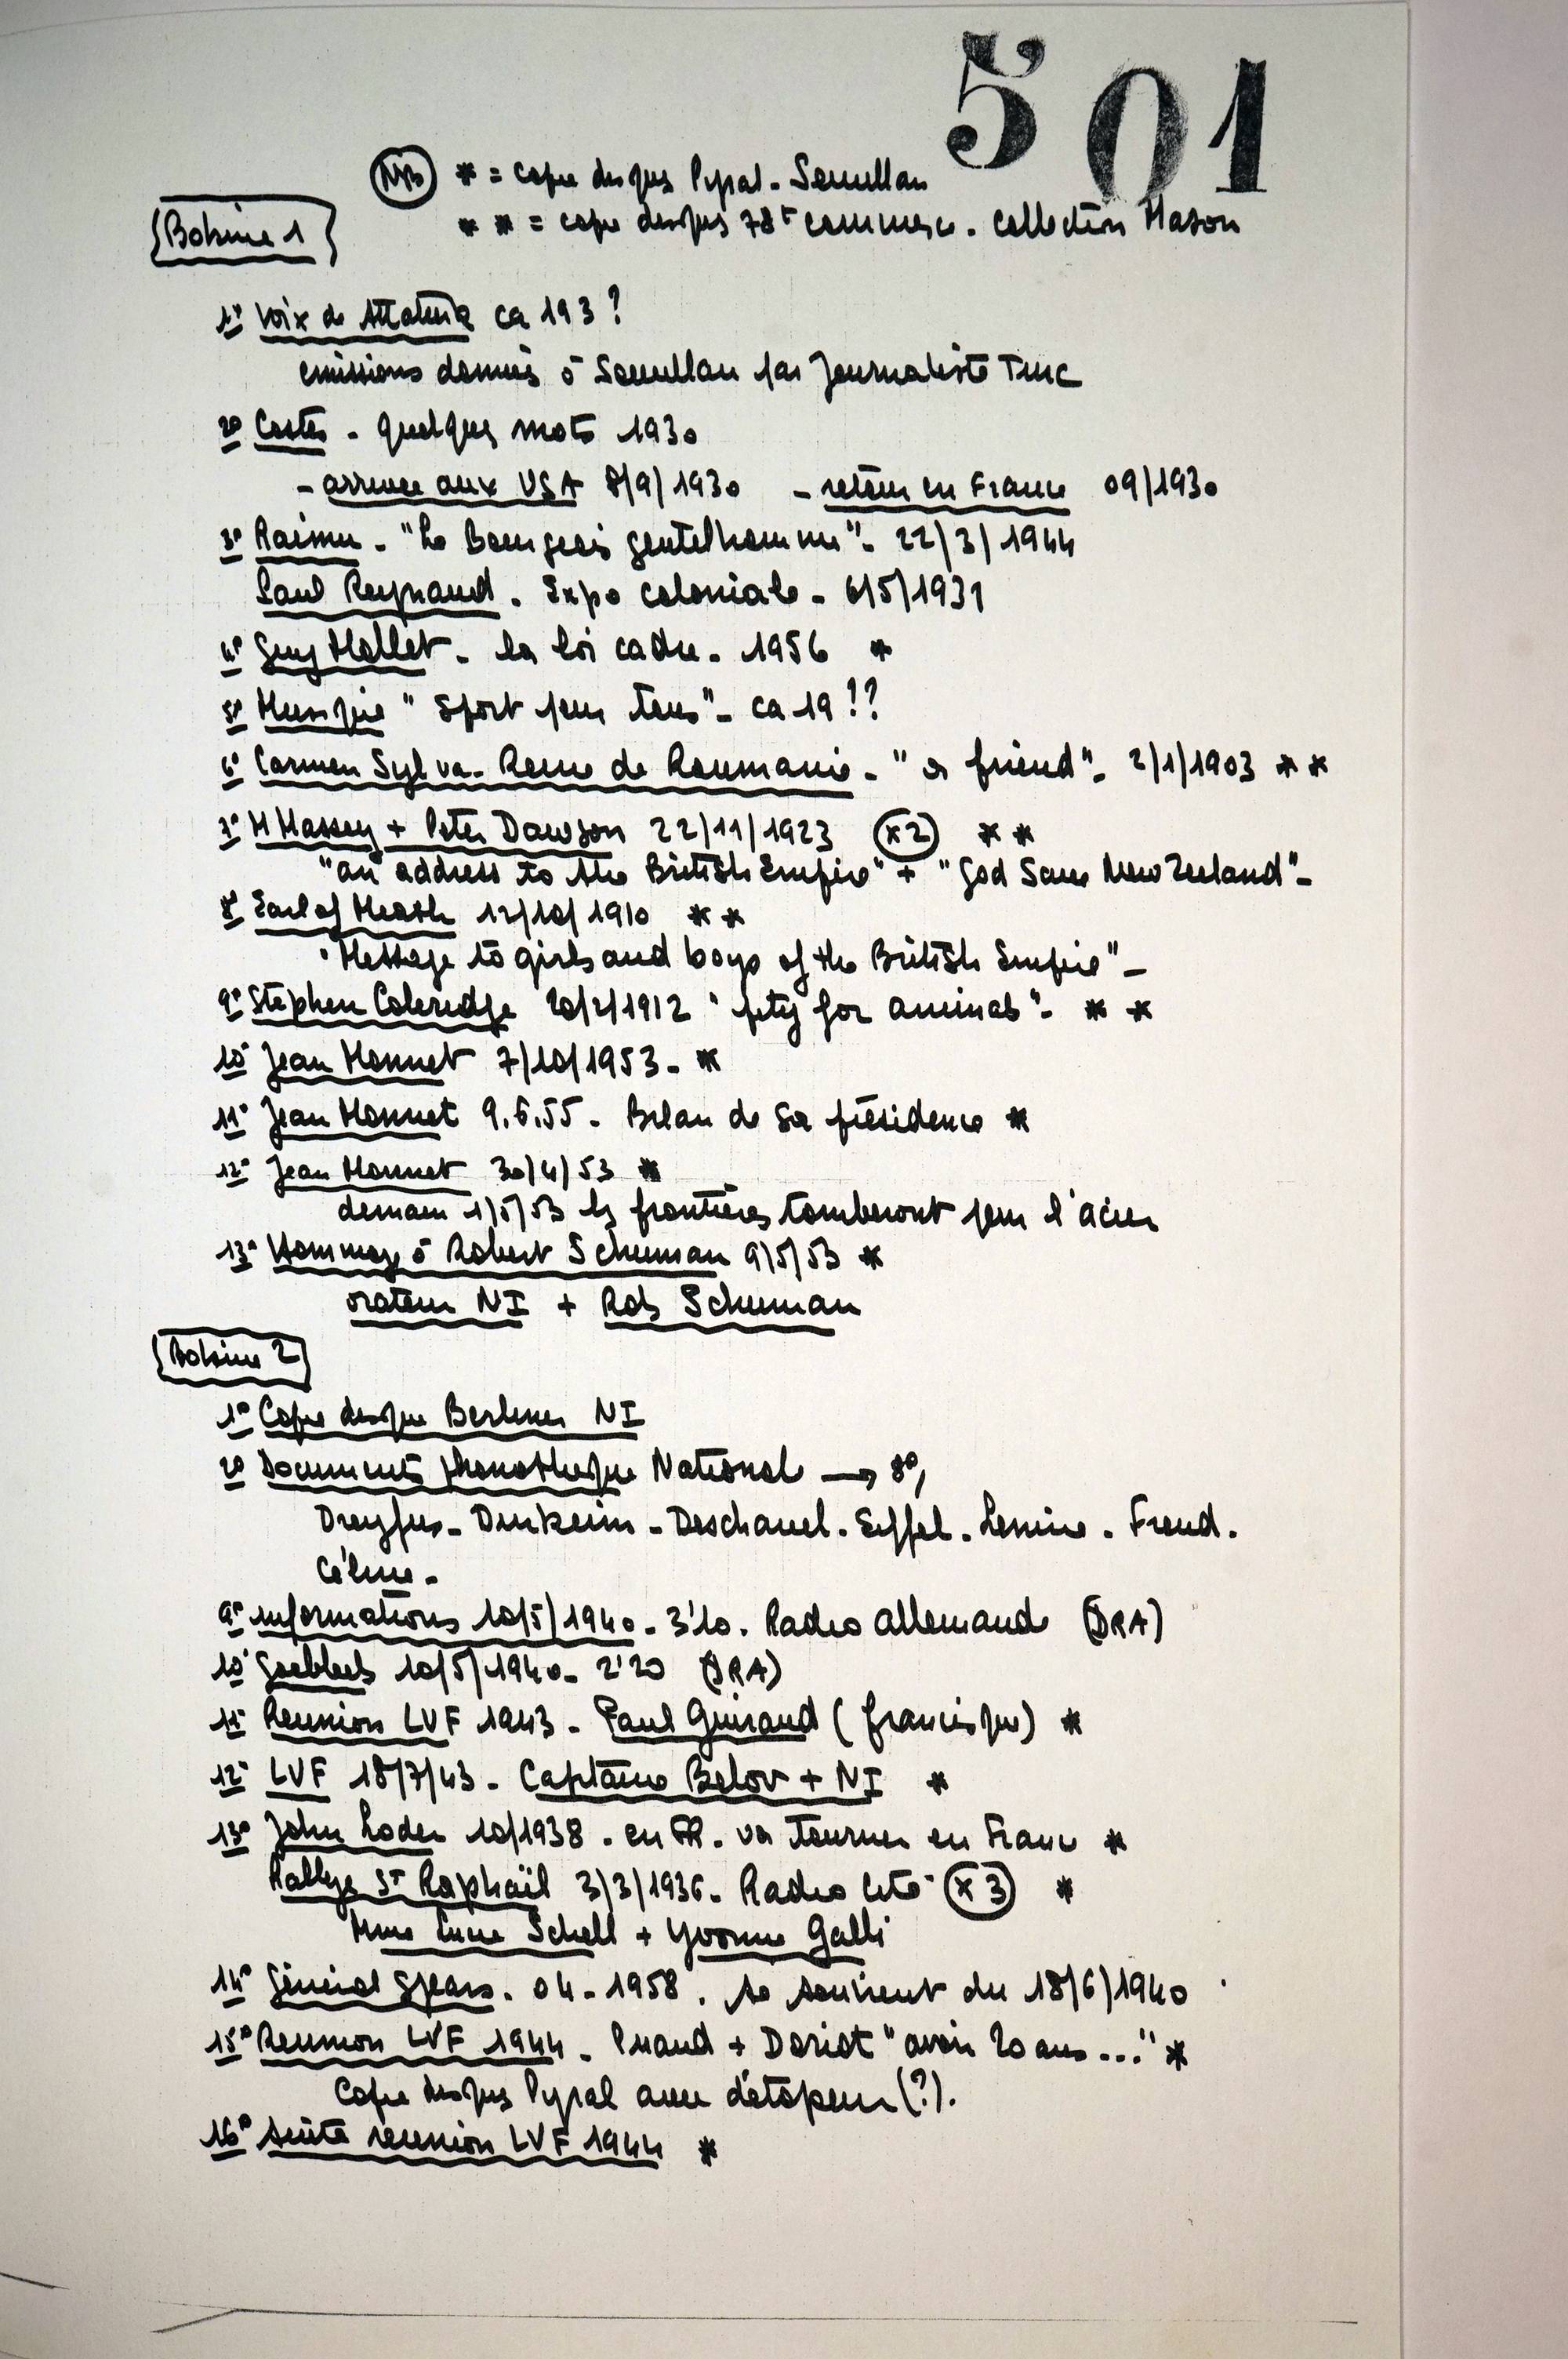 501
NB * = copie disques Pyral - Semullan
** = copie disques 78t commerce. collection Mason
Bobine 1
1° Voix de Attaturk ca 193?
emissions donnés à Semullan par Journaliste Turc
2° Costes - quelques mots 1930
- arrivée aux USA 8/9/1930 - retour en France 09/1930
3° Raimu - "Le Bourgeois gentelhomme" - 22/3/1944
Paul Reynaud. Expo coloniale - 6/5/1931
4° Guy Mollet - la loi cadre - 1956 *
5° Musique "Sport pour tous" - ca 19!?
6° Carmen Sylva - Reine de Roumanie - "a friend" - 2/1/1903 **
7° M Massey + Peter Dawson 22/11/1923 (x2) **
"an address to the British Empire" + "God Save New Zeeland" -
8° Earl of Meath 12/10/1910 **
"Message to girls and boys of the British Empire" -
9° Stephen Coleridge 20/2/1912 "pity for animals" - **
10° Jean Monnet 7/10/1953 - *
11° Jean Monnet 9.6.55 - Bilan de sa présidence *
12° Jean Monnet 30/4/53 *
demain 1/5/53 les frontières tomberont pour l'acier
13° Hommage à Robert Schuman 9/5/53 *
orateur NI + Rob Schuman
Bobine 2
1° Copie disque Berliner NI
2° Documents phonothèque National → 8°,
Dreyfus - Durkeim - Deschanel - Eiffel - Lenine - Freud.
Céline -
9° informations 10/5/1940 - 3'10. Radio allemande (DRA)
10° Goebbels 10/5/1940 - 2'20 (DRA)
11° Reunion LVF 1943 - Paul Guiraud (francisque) *
12° LVF 18/7/43 - Capitaine Belov + NI *
13° John Loder 10/1938 - en FR. va tourner en France *
Rallye St Raphaël 3/3/1936 - Radio Cité (x3) *
Mme Lucie Schell + Yvonne Galli
14° Général Spears. 04-1958. se souvient du 18/6/1940
15° Reunion LVF 1944 - Puaud + Doriot "avoir 20 ans ..." *
Copie disques Pyral avec d'étopeur (?).
16° suite reunion LVF 1944 *